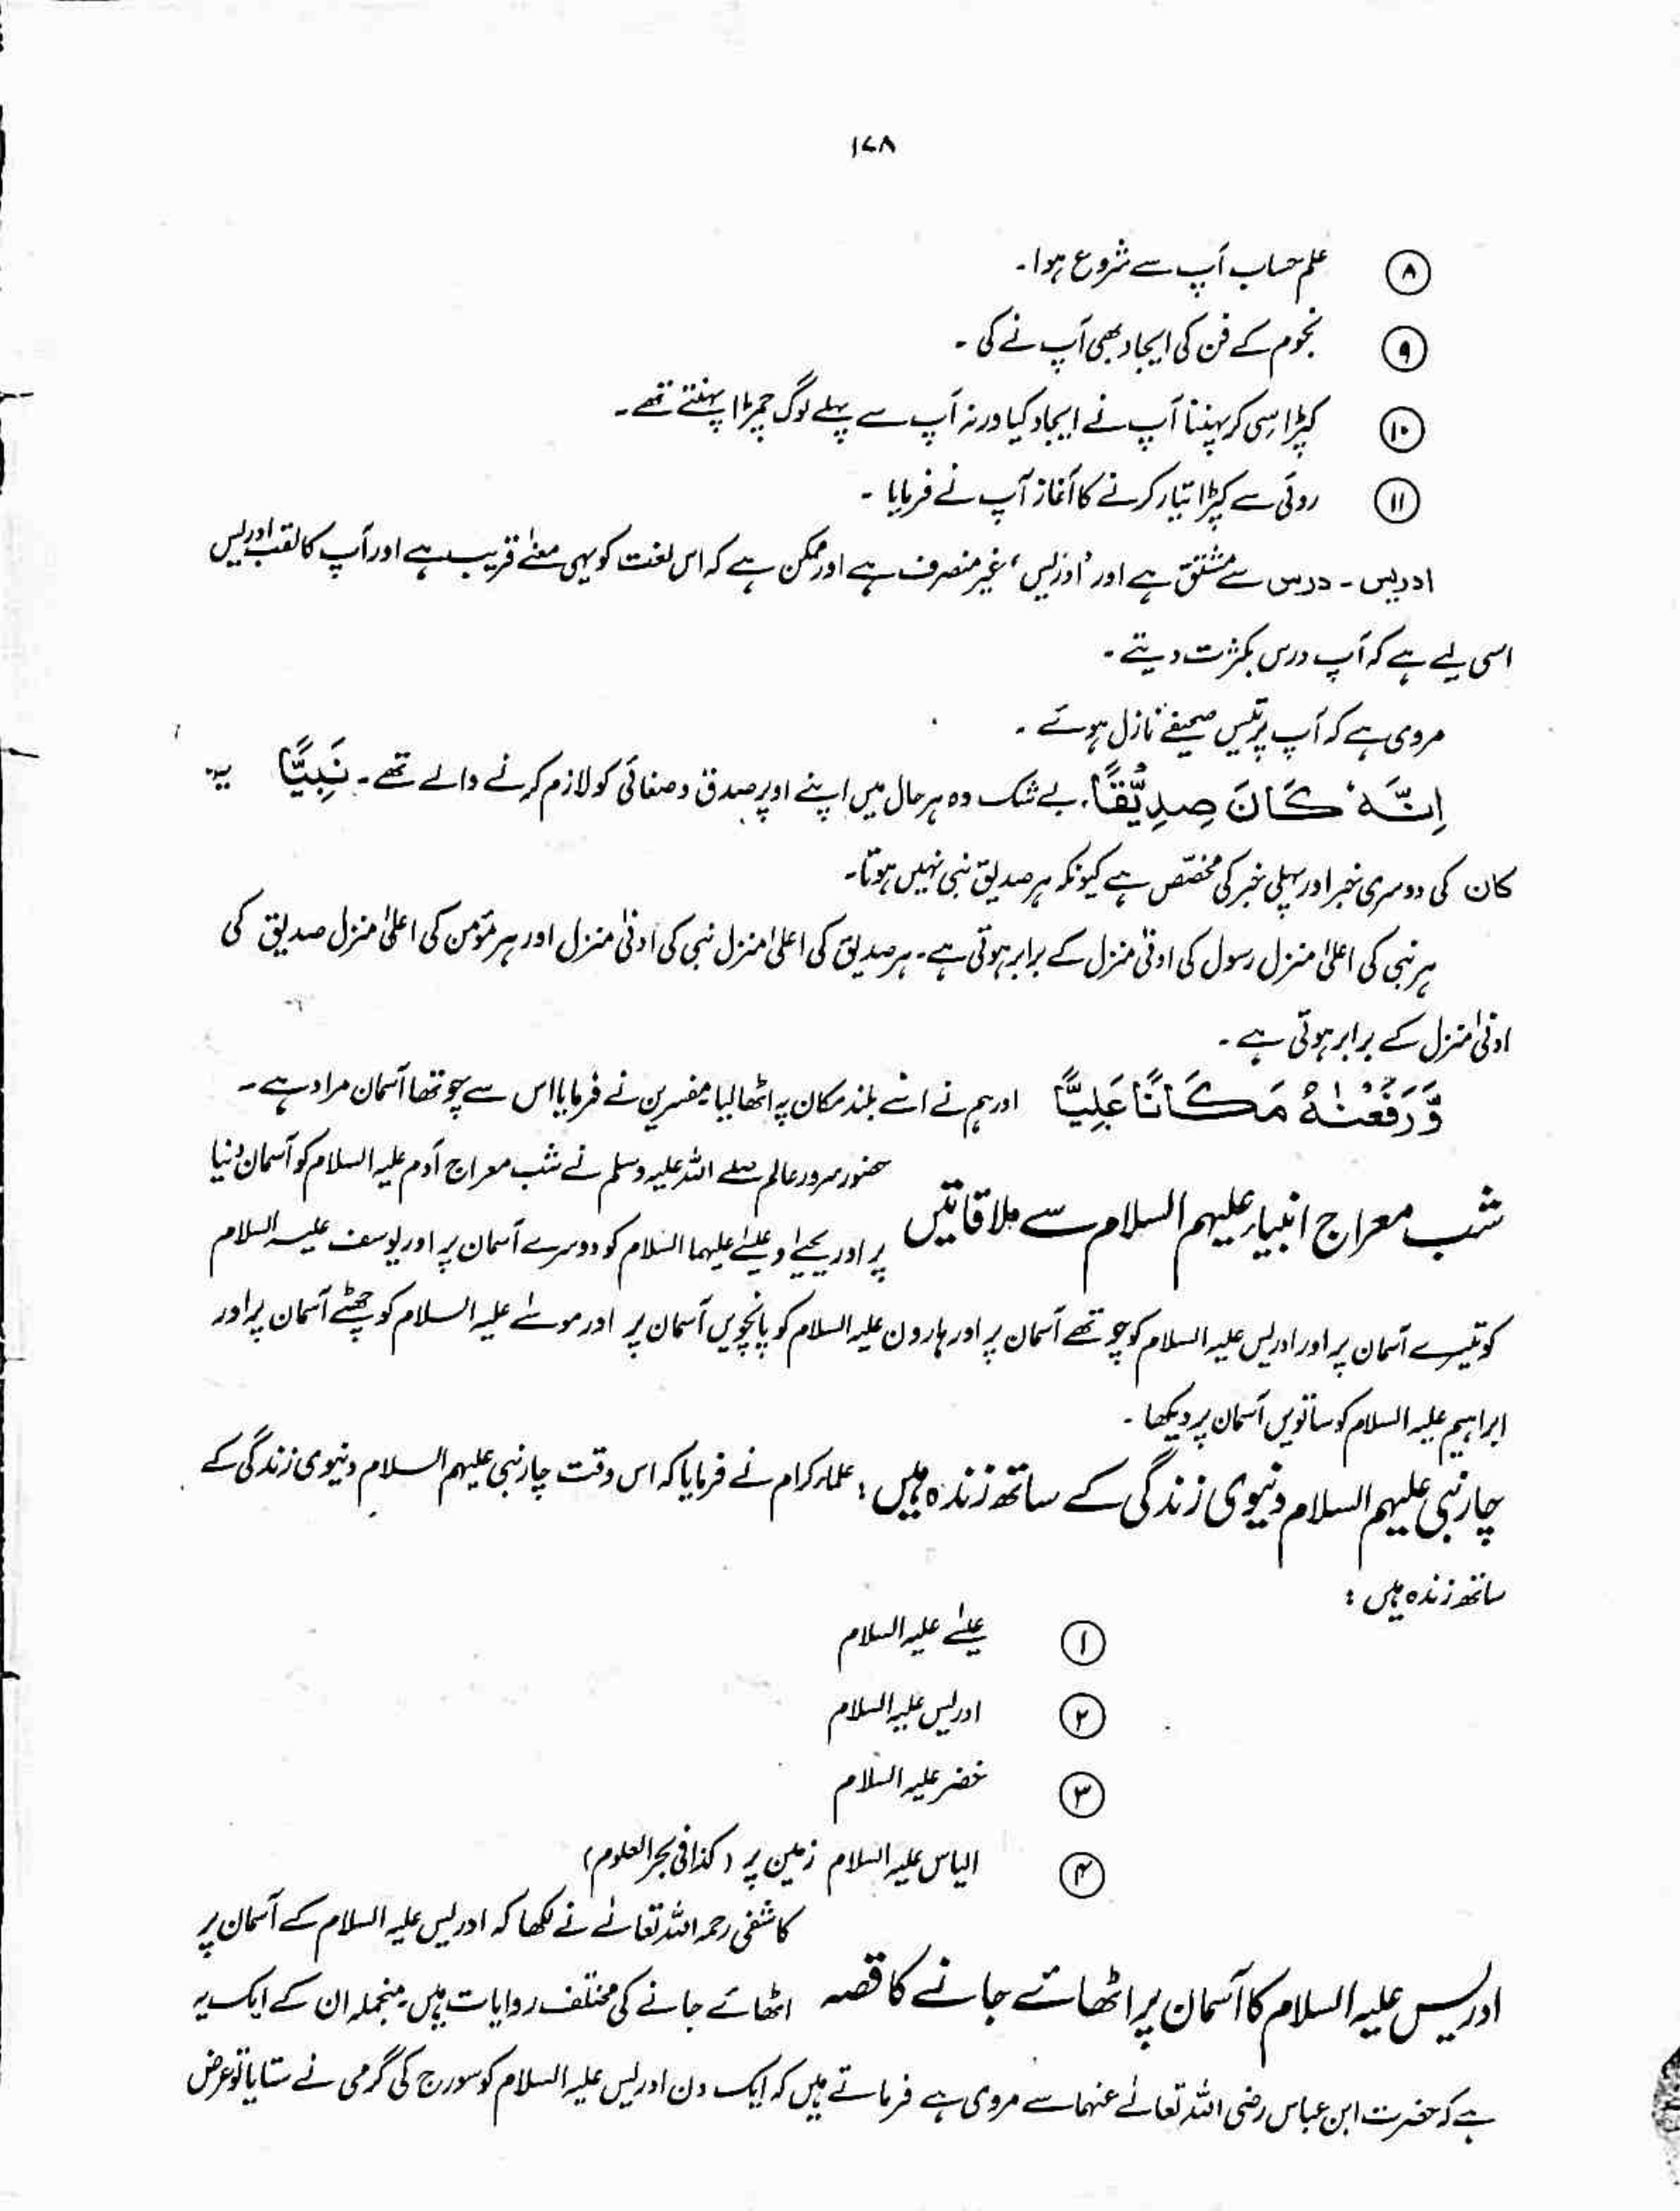 ۱۷۸
۸ علم حساب آپ سے شروع ہوا۔
۹ نجوم کے فن کی ایجاد بھی آپ نے کی ۔
۱۰ کپڑا سی کر پہننا آپ نے ایجاد کیا ورنہ آپ سے پہلے لوگ چمڑا پہنتے تھے۔
۱۱ روئی سے کپڑا تیار کرنے کا آغاز آپ نے فرمایا ۔
ادریس ۔ درس سے مشتق ہے اور ’ادریس‘ غیر منصرف ہے اور ممکن ہے کہ اس لغت کو یہی معنے قریب ہے اور آپ کا لقب ادریس
اسی لیے ہے کہ آپ درس بکثرت دیتے ۔
مروی ہے کہ آپ پر تیس صحیفے نازل ہوئے ۔
اِنَّہٗ کَانَ صِدِّیْقًا، بے شک وہ ہر حال میں اپنے اوپر صدق و صفائی کو لازم کرنے والے تھے ۔ نَبِیًّا یہ
کان کی دوسری خبر اور پہلی خبر کی مخصّص ہے کیونکہ ہر صدیق نبی نہیں ہوتا۔
ہر نبی کی اعلیٰ منزل رسول کی ادنیٰ منزل کے برابر ہوتی ہے۔ ہر صدیق کی اعلیٰ منزل نبی کی ادنیٰ منزل اور ہر مؤمن کی اعلیٰ منزل صدیق کی
ادنیٰ منزل کے برابر ہوتی ہے ۔
وَّرَفَعْنٰہُ مَکَانًا عَلِیًّا اور ہم نے اسے بلند مکان پہ اٹھا لیا مفسرین نے فرمایا اس سے چوتھا آسمان مراد ہے ۔
شب معراج انبیاء علیہم السلام سے ملاقاتیں حضور سرور عالم صلے اللہ علیہ وسلم نے شب معراج آدم علیہ السلام کو آسمان دنیا
پر اور یحییٰ و عیسےٰ علیہما السلام کو دوسرے آسمان پر اور یوسف علیہ السلام
کو تیسرے آسمان پر اور ادریس علیہ السلام کو چوتھے آسمان پر اور ہارون علیہ السلام کو پانچویں آسمان پر اور موسےٰ علیہ السلام کو چھٹے آسمان پر اور
ابراہیم علیہ السلام کو ساتویں آسمان پر دیکھا ۔
چار نبی علیہم السلام دنیوی زندگی کے ساتھ زندہ ہیں : علماء کرام نے فرمایا کہ اس وقت چار نبی علیہم السلام دنیوی زندگی کے
ساتھ زندہ ہیں :
۱ عیسےٰ علیہ السلام
۲ ادریس علیہ السلام
۳ خضر علیہ السلام
۴ الیاس علیہ السلام زمین پر (کذا فی بحر العلوم)
ادریس علیہ السلام کا آسمان پر اٹھائے جانے کا قصہ کاشفی رحمہ اللہ تعالےٰ نے لکھا کہ ادریس علیہ السلام کے آسمان پر
اٹھائے جانے کی مختلف روایات ہیں، منجملہ ان کے ایک یہ
ہے کہ حضرت ابن عباس رضی اللہ تعالےٰ عنہما سے مروی ہے فرماتے ہیں کہ ایک دن ادریس علیہ السلام کو سورج کی گرمی نے ستایا تو عرض